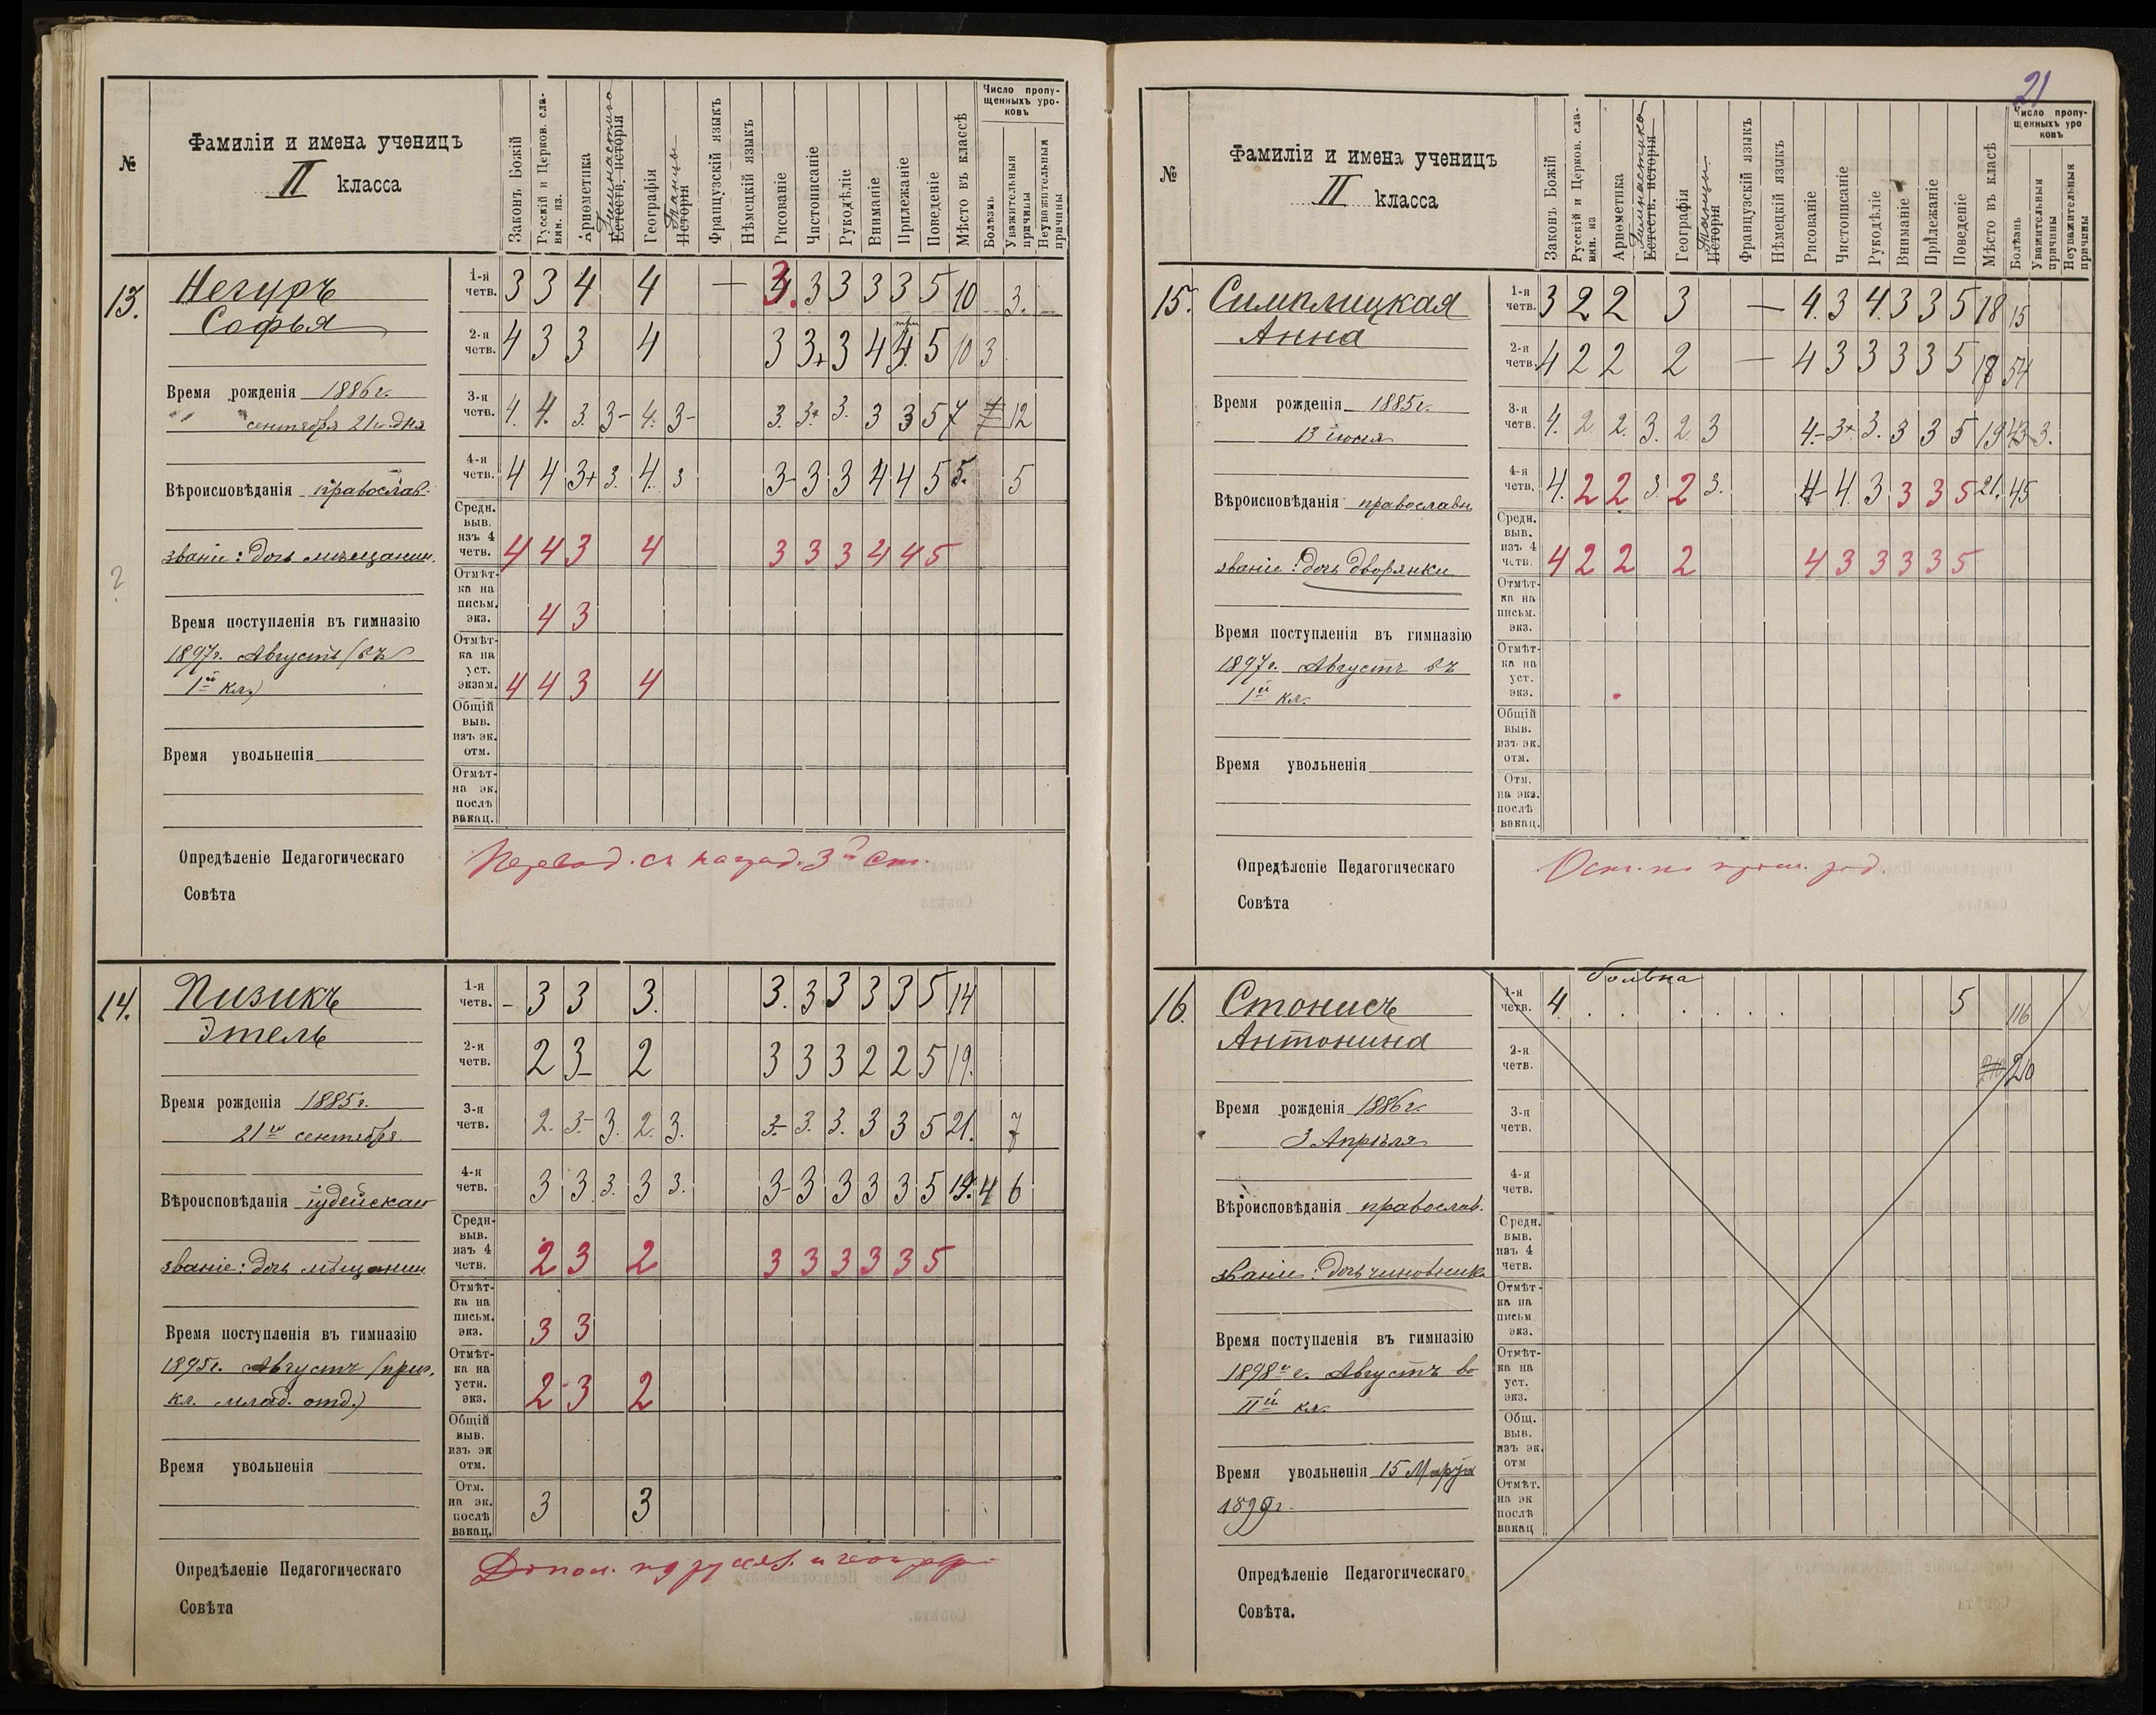 №
Фамиліи и имена ученицъ
II класса
Законъ Божій
Русскій и Церков. сла-
вин. яз.
Ариѳметика
Гимнастика
Естеств. исторія
Географія
Танцы
Исторія
Французскій языкъ
Нѣмецкій языкъ
Рисованіе
Чистописаніе
Рукодѣліе
Вниманіе
Прилежаніе
Поведеніе
Мѣсто въ классѣ
Число пропу-
щенныхъ уро-
ковъ
Болѣзнь
Уважительныя
причины
Неуважительныя
причины
13.
Негуръ
Софья
Время рожденія 1886 г.
сентября 21го дня
Вѣроисповѣданія православ.
званіе: дочь мѣщанин.
Время поступленія въ гимназію
1897 г. Августъ (въ
1й кл.)
Время увольненія
1-я четв. 3 3 4 4 — 3. 3 3 3 3 5 10 3.
2-я четв. 4 3 3 4 3 3+ 3 4 4 5 10 3
3-я четв. 4. 4. 3. 3- 4. 3- 3. 3+ 3. 3 3 5 7 12
4-я четв. 4 4 3+ 3. 4. 3 3- 3 3 4 4 5 5. 5
Средн. выв. изъ 4 четв. 4 4 3 4 3 3 3 4 4 5
Отмѣт- ка на письм. экз. 4 3
Отмѣт- ка на уст. экзам. 4 4 3 4
Общій выв. изъ эк. отм.
Отмѣт- на эк. послѣ вакац.
Опредѣленіе Педагогическаго
Совѣта
Перевод. съ наград. 3й ст.
14.
Пизикъ
Этель
Время рожденія 1885 г.
21го сентября
Вѣроисповѣданія іудейскаго
званіе: дочь мѣщанин
Время поступленія въ гимназію
1895 г. Августъ (приг.
кл. млад. отд.)
Время увольненія
1-я четв. – 3 3 3. 3. 3 3 3 3 5 14
2-я четв. 2 3- 2 3 3 3 2 2 5 19.
3-я четв. 2. 3- 3. 2. 3. 3- 3. 3. 3 3 5 21. 7
4-я четв. 3 3 3. 3 3. 3- 3 3 3 3 5 19. 4 6
Средн- выв. изъ 4 четв. 2 3 2 3 3 3 3 3 5
Отмѣт- ка на письм. экз. 3 3
Отмѣт- ка на устн. экз. 2- 3 2
Общій выв. изъ эк отм.
Отм. на эк. послѣ вакац. 3 3
Опредѣленіе Педагогическаго
Совѣта
Допол. по русск. и географ.
21
№
Фамиліи и имена ученицъ
II класса
Законъ Божій
Русскій и Церков. сла-
вин. яз
Ариѳметика
Гимнастика
Естеств. исторія
Географія
Танцы
Исторія
Французскій языкъ
Нѣмецкій языкъ
Рисованіе
Чистописаніе
Рукодѣліе
Вниманіе
Прилежаніе
Поведеніе
Мѣсто въ класѣ
Число пропу-
щенныхъ уро
ковъ
Болѣзнь
Уважительныя
причины
Неуважительныя
причины
15.
Симплицкая
Анна
Время рожденія 1885 г.
13 іюня
Вѣроисповѣданія православн
званіе: дочь дворянки
Время поступленія въ гимназію
1897 г. Августъ въ
1й кл.
Время увольненія
1-я четв. 3 2 2 3 — 4. 3 4. 3 3 5 18 15
2-я четв. 4 2 2 2 — 4 3 3 3 3 5 18 54
3-я четв. 4. 2. 2. 3. 2. 3 4.- 3+ 3. 3 3 5 19 43 3.
4-я четв. 4. 2 2 3. 2 3. 4- 4. 3 3 3 5 21. 45
Средн. выв. изъ 4 четв. 4 2 2 2 4 3 3 3 3 5
Отмѣт- ка на письм. экз.
Отмѣт- ка на уст. экз.
Общій выв. изъ эк. отм.
Отм. на экз. послѣ вакац.
Опредѣленіе Педагогическаго
Совѣта
16.
Стонисъ
Антонина
Время рожденія 1886 г.
3 Апрѣля
Вѣроисповѣданія православ.
званіе: дочь чиновника
Время поступленія въ гимназію
1898 г. Августъ во
IIй кл.
Время увольненія 15 Марта
1899 г.
больна
1-я четв. 4. . . . . . . 5 116
2-я четв. 210
3-я четв.
4-я четв.
Средн. выв. изъ 4 четв.
Отмѣт- ка на письм экз.
Отмѣт- ка на уст. экз.
Общ. выв. изъ эк. отм
Отмѣт. на эк послѣ вакац
Опредѣленіе Педагогическаго
Совѣта.